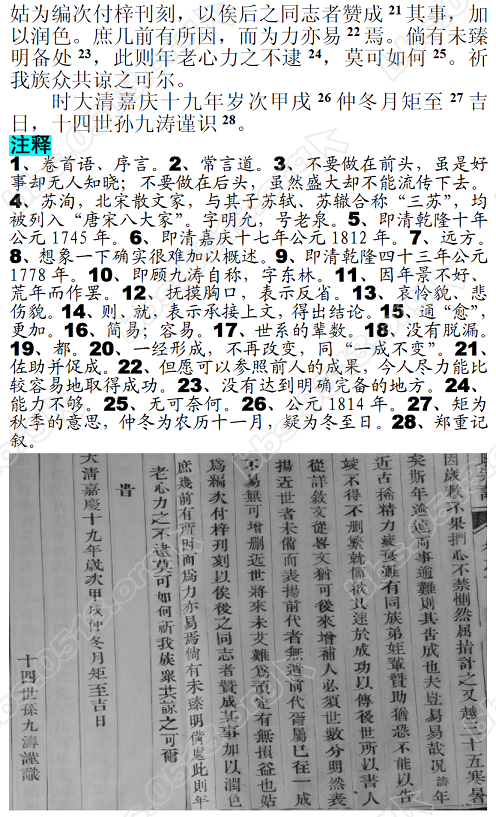 姑为编次付梓刊刻，以俟后之同志者赞成 21 其事，加
以润色。庶几前有所因，而为力亦易 22 焉。倘有未臻
明备处 23，此则年老心力之不逮 24，莫可如何 25。祈
我族众共谅之可尔。
时大清嘉庆十九年岁次甲戌 26 仲冬月矩至 27 吉
日，十四世孙九涛谨识 28。
注释
1、卷首语、序言。2、常言道。3、不要做在前头，虽是好
事却无人知晓；不要做在后头，虽然盛大却不能流传下去。
4、苏洵，北宋散文家，与其子苏轼、苏辙合称“三苏”，均
被列入“唐宋八大家”。字明允，号老泉。5、即清乾隆十年
公元 1745 年。6、即清嘉庆十七年公元 1812 年。7、远方。
8、想象一下确实很难加以概述。9、即清乾隆四十三年公元
1778 年。10、即顾九涛自称，字东林。11、因年景不好、
荒年而作罢。12、抚摸胸口，表示反省。13、哀怜貌、悲
伤貌。14、则、就，表示承接上文，得出结论。15、通“愈”，
更加。16、简易；容易。17、世系的辈数。18、没有脱漏。
19、都。20、一经形成，不再改变，同“一成不变”。21、
佐助并促成。22、但愿可以参照前人的成果，今人尽力能比
较容易地取得成功。23、没有达到明确完备的地方。24、
能力不够。25、无可奈何。26、公元 1814 年。27、矩为
秋季的意思，仲冬为农历十一月，疑为冬至日。28、郑重记
叙。
因歲歉不果捫心不禁惻然屈指計之又越三十五寒暑
矣斯年逾邁而事逾難則其告成也夫豈易易哉况濤年
近古稀精力疲憊雖有同族弟姪輩贊助猶恐不能以告
竣不得不刪繁就簡欲其速於成功以傳後世所以書人
從詳敘文從畧文猶可後來增補人必須世數分明然表
揚近世者未備而表揚前代者無遺前代胥屬已往一成
不易無可增刪近世將來未艾難為預定有無損益也姑
為編次付梓刊刻以俟後之同志者贊成其事加以潤色
庶幾前有所因而為力亦易焉倘有未臻明備處此則年
老心力之不逮莫可如何祈我族衆共諒之可爾
旹
大清嘉慶十九年歲次甲戌仲冬月矩至吉日
十四世孫九濤謹識